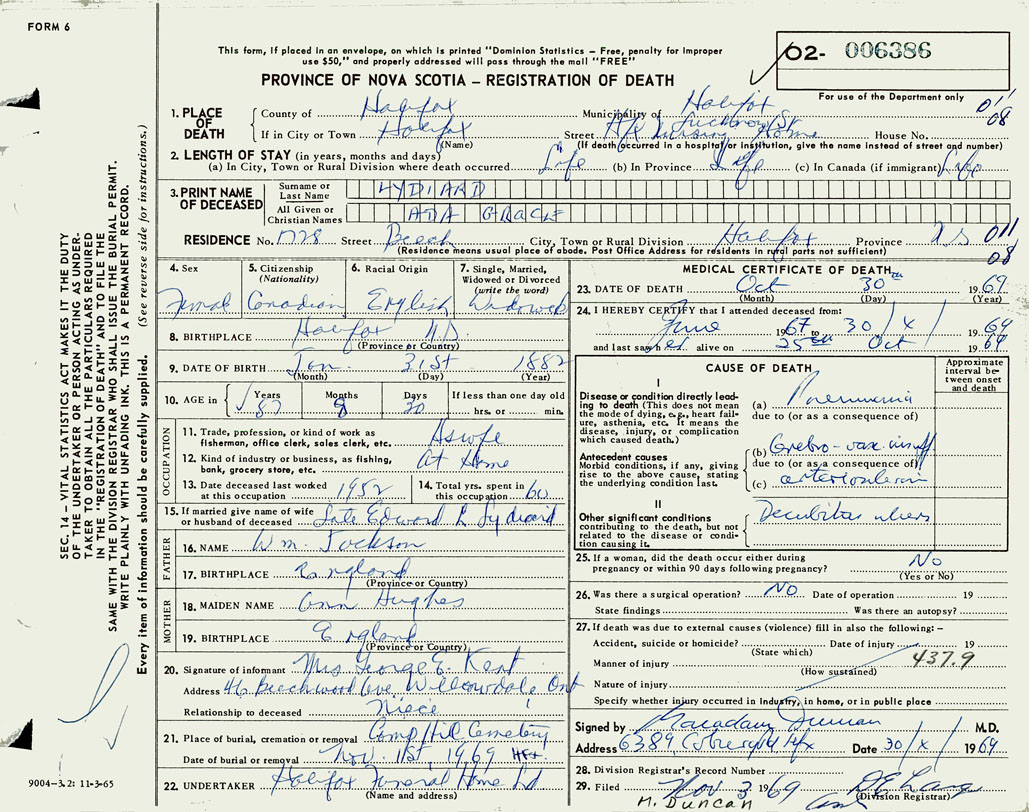 FORM 6
This form, if placed in an envelope, on which is printed "Dominion Statistics – Free, penalty for improper
use $50," and properly addressed will pass through the mail "FREE"
PROVINCE OF NOVA SCOTIA – REGISTRATION OF DEATH
02- 006386
For use of the Department only
1. PLACE OF DEATH
County of Halifax Municipality of Halifax 01/08
If in City or Town Halifax Street Nursing Home House No.
(Name) (If death occurred in a hospital or institution, give the name instead of street and number)
2. LENGTH OF STAY (in years, months and days)
(a) In City, Town or Rural Division where death occurred Life (b) In Province Life (c) In Canada (if immigrant) Life
3. PRINT NAME OF DECEASED
Surname or Last Name LYDIARD
All Given or Christian Names ADA GRACE
RESIDENCE No. 1728 Street Beech City, Town or Rural Division Halifax Province NS 011
(Residence means usual place of abode. Post Office Address for residents in rural parts not sufficient) 08
4. Sex Female
5. Citizenship (Nationality) Canadian
6. Racial Origin English
7. Single, Married, Widowed or Divorced (write the word) Widowed
8. BIRTHPLACE Halifax N.S
(Province or Country)
9. DATE OF BIRTH Jan 31st 1882
(Month) (Day) (Year)
10. AGE in Years 87 Months 8 Days 30 If less than one day old
hrs. or min.
OCCUPATION
11. Trade, profession, or kind of work as fisherman, office clerk, sales clerk, etc. Hswfe
12. Kind of industry or business, as fishing, bank, grocery store, etc. At Home
13. Date deceased last worked at this occupation 1952
14. Total yrs. spent in this occupation 60
15. If married give name of wife or husband of deceased Late Edward L Lydiard
FATHER
16. NAME Wm. Jackson
17. BIRTHPLACE England
(Province or Country)
MOTHER
18. MAIDEN NAME Ann Hughes
19. BIRTHPLACE England
(Province or Country)
20. Signature of informant Mrs George E. Kent
Address 46 Beechwood Ave Willowdale Ont
Relationship to deceased Niece
21. Place of burial, cremation or removal Camp Hill Cemetery
Date of burial or removal Nov. 1st, 1969 Hfx.
22. UNDERTAKER Halifax Funeral Home Ltd
(Name and address)
MEDICAL CERTIFICATE OF DEATH
23. DATE OF DEATH Oct 30th 1969
(Month) (Day) (Year)
24. I HEREBY CERTIFY that I attended deceased from:
June 1967 to 30/X/ 1969
and last saw her alive on 25th Oct 1969
CAUSE OF DEATH
Approximate interval between onset and death
I
Disease or condition directly leading to death (This does not mean the mode of dying, e.g., heart failure, asthenia, etc. It means the disease, injury, or complication which caused death.)
(a) Pneumonia
due to (or as a consequence of)
Antecedent causes
Morbid conditions, if any, giving rise to the above cause, stating the underlying condition last.
(b) Cerebro-vasc insuff
due to (or as a consequence of)
(c)
II
Other significant conditions contributing to the death, but not related to the disease or condition causing it.
Decubitus ulcers
25. If a woman, did the death occur either during pregnancy or within 90 days following pregnancy? No
(Yes or No)
26. Was there a surgical operation? No Date of operation 19
State findings Was there an autopsy?
27. If death was due to external causes (violence) fill in also the following: –
Accident, suicide or homicide? Date of injury 19
(State which)
Manner of injury 437.9
(How sustained)
Nature of injury
Specify whether injury occurred in industry, in home, or in public place
Signed by Macadam Duncan M.D.
Address 6389 Coburg Rd Hfx Date 30/X/ 1969
28. Division Registrar's Record Number
29. Filed Nov 3 1969
(Division Registrar)
M. DUNCAN
SEC. 14 – VITAL STATISTICS ACT MAKES IT THE DUTY
OF THE UNDERTAKER OR PERSON ACTING AS UNDER-
TAKER TO OBTAIN ALL THE PARTICULARS REQUIRED
IN THE "REGISTRATION OF DEATH" AND TO FILE THE
SAME WITH THE DIVISION REGISTRAR WHO SHALL ISSUE THE BURIAL PERMIT.
WRITE PLAINLY WITH UNFADING INK. THIS IS A PERMANENT RECORD.
Every item of information should be carefully supplied. (See reverse side for instructions.)
9004-3.2: 11-3-65